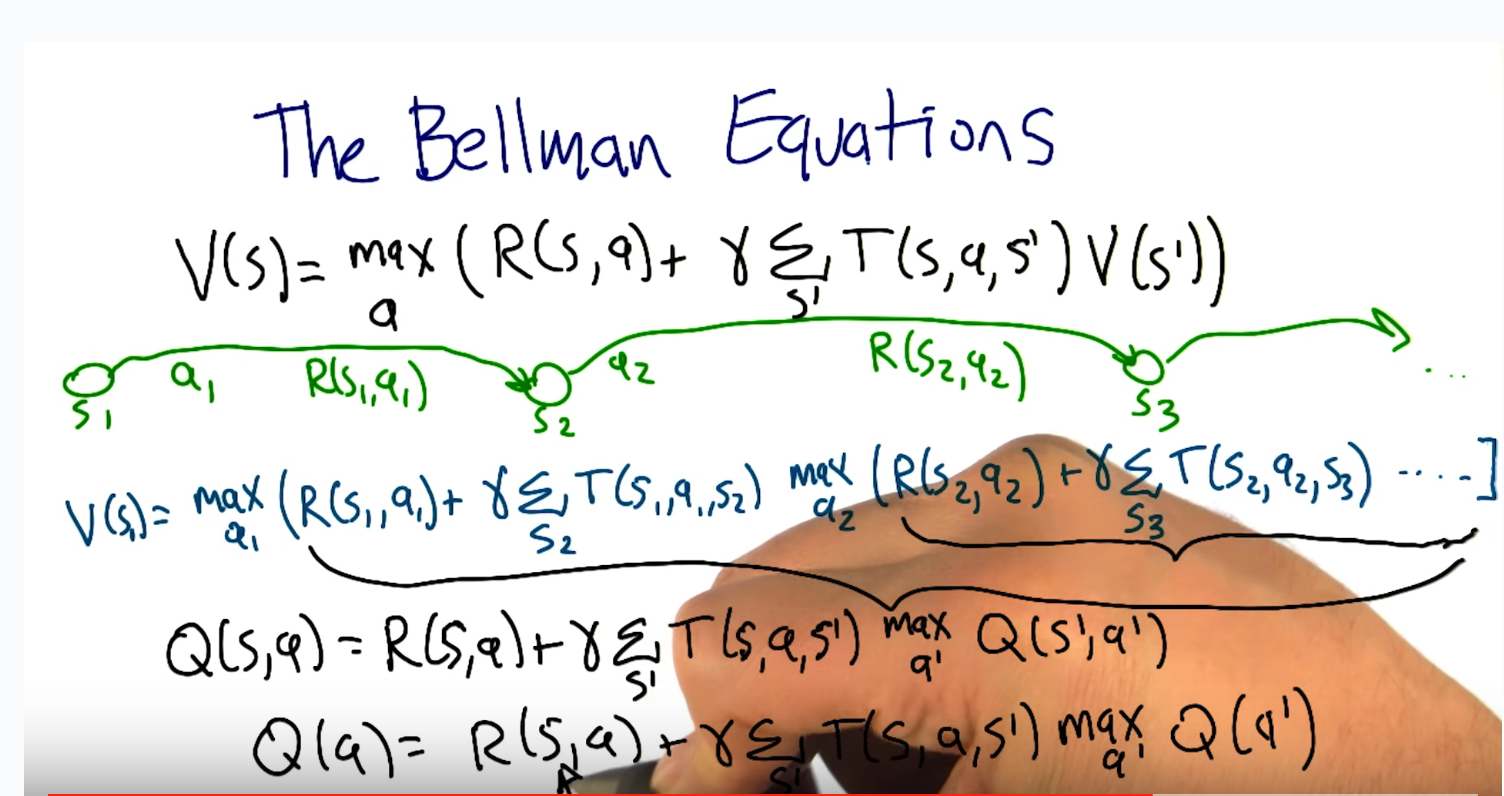 The Bellman Equations
V(s) = max_a (R(s,a) + γ Σ_s' T(s,a,s') V(s'))
s1 a1 R(s1,a1) s2 a2 R(s2,a2) s3 ...
V(s1) = max_a1 (R(s1,a1) + γ Σ_s2 T(s1,a1,s2) max_a2 (R(s2,a2) + γ Σ_s3 T(s2,a2,s3) .....]
Q(s,a) = R(s,a) + γ Σ_s' T(s,a,s') max_a' Q(s',a')
Q(a) = R(s,a) + γ Σ_s' T(s,a,s') max_a' Q(a')